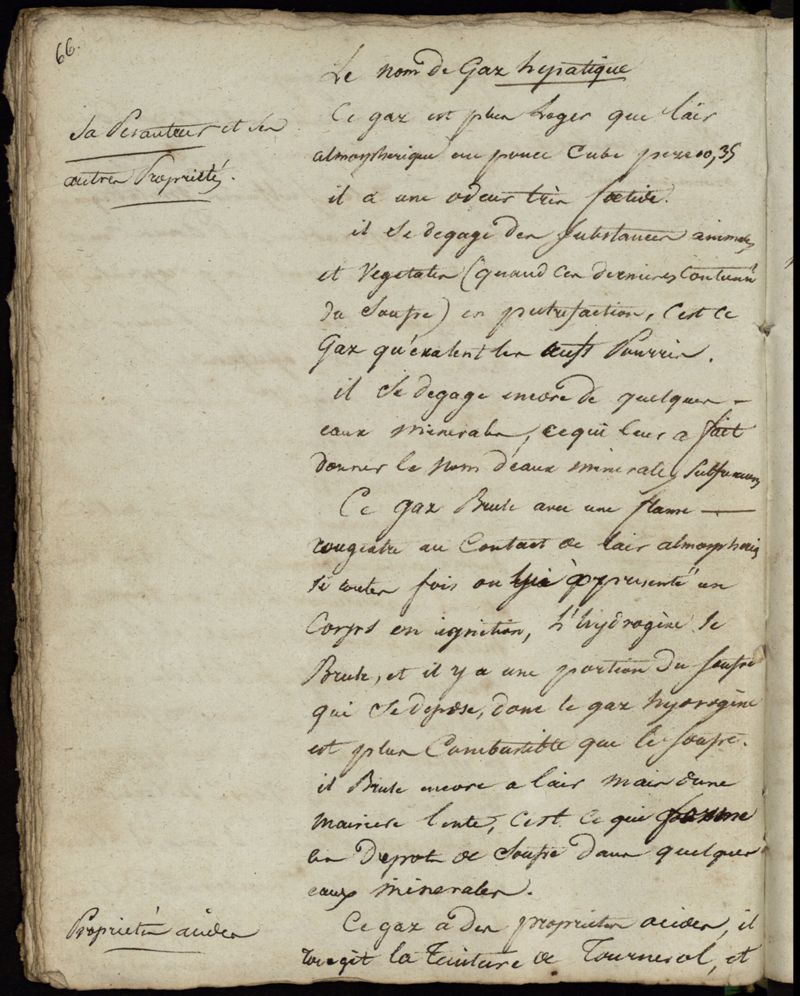 66.
Le nom de Gaz hépatique
Sa Pesanteur et ses
autres Propriétés.
Ce gaz est plus Leger que l'air
atmospherique un pouce Cube pese 0,35
il a une odeur très foetide.
il se degage des substances animales
et Vegetales (quand ces dernieres contiennent
du Soufre) en putrefaction, c'est ce
Gaz qu'exalent les oeufs Pourris.
il se degage encore de quelques
eaux minerales, ce qui leur a fait
donner le nom d'eaux minerales sulfureuses
Ce gaz Brule avec une flame
rougeatre au Contact de l'air atmospheriq
si toutes fois on lui a presenté un
Corps en ignition, L'hydrogène se
Brule, et il y a une portion du soufre
qui se depose, donc le gaz hydrogène
est plus Combustible que le soufre.
il Brule encore a l'air mais d'une
maniere lente, c'est ce qui forme
les Depots de Soufre dans quelques
eaux minerales.
Propriétés acides
Ce gaz a des proprietes acides, il
rougit la teinture de Tournesol, et